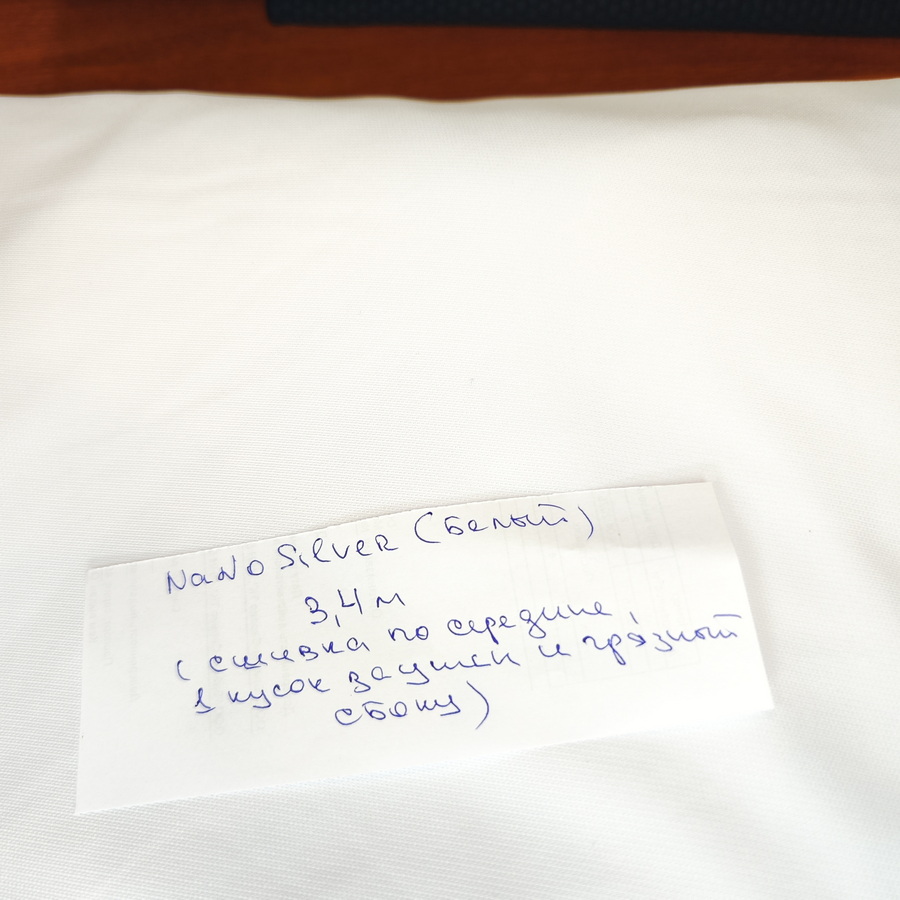 NaNo Silver (белый)
3,4 м
(сшивка по середине,
1 кусок и грязный
сбоку)